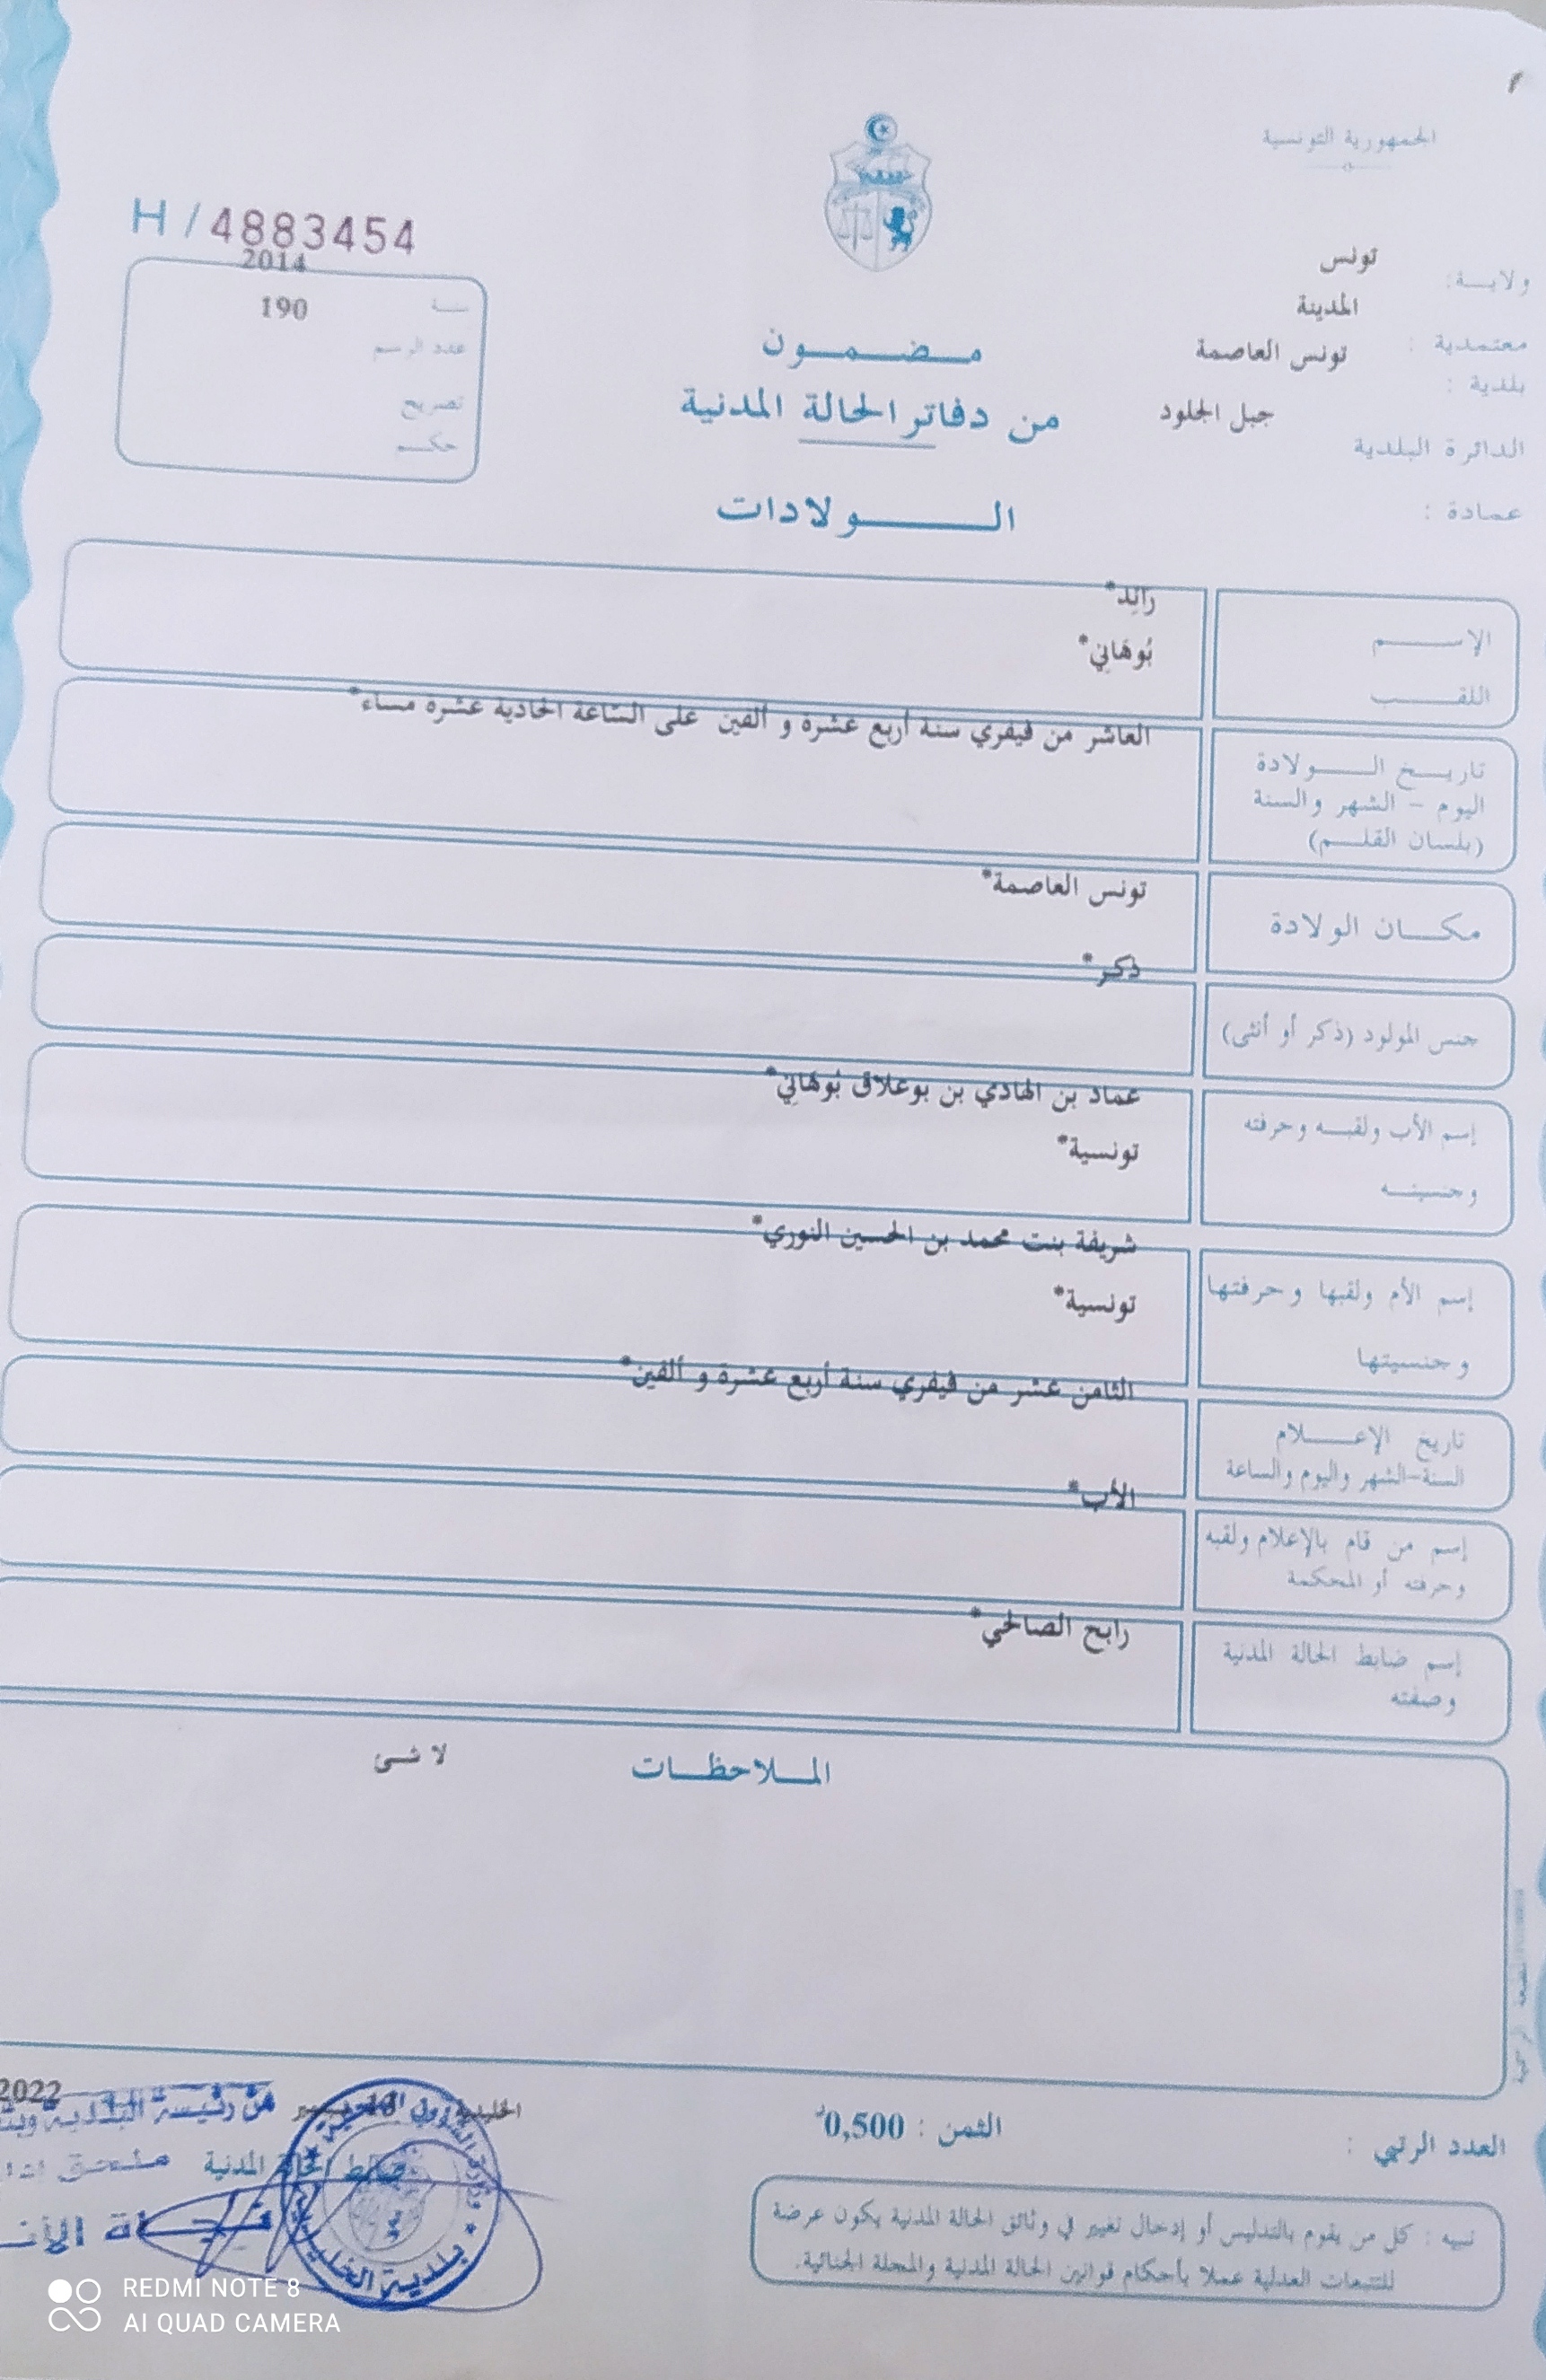 الجمهورية التونسية
H / 4883454
ولاية: تونس
معتمدية : المدينة
بلدية : تونس العاصمة
الدائرة البلدية جبل الجلود
عمادة :
2014
سنة
190
عدد الرسم
تصريح
حكم
مضمون
من دفاتر الحالة المدنية
الولادات
الإسم
رَائِد*
اللقب
بُوهَانِي*
تاريخ الولادة
اليوم - الشهر والسنة
(بلسان القلم)
العاشر من فيفري سنة أربع عشرة و ألفين على السّاعة الحادية عشرة مساء*
مكان الولادة
تونس العاصمة*
جنس المولود (ذكر أو أنثى)
ذكر*
إسم الأب ولقبه وحرفته
وجنسيته
عماد بن الهادي بن بوعلاق بُوهَانِي*
تونسية*
إسم الأم ولقبها وحرفتها
وجنسيتها
شريفة بنت محمد بن الحسين النوري*
تونسية*
تاريخ الإعلام
السنة-الشهر واليوم والساعة
الثامن عشر من فيفري سنة أربع عشرة و ألفين*
إسم من قام بالإعلام ولقبه
وحرفته أو المحكمة
الأب*
إسم ضابط الحالة المدنية
وصفته
رابح الصالحي*
الملاحظات
لا شئ
العدد الرتبي :
الثمن : 0,500د
2022
عن رئيسة البلدية
ضابط الحالة المدنية
ملحق
تنبيه : كل من يقوم بالتدليس أو إدخال تغيير في وثائق الحالة المدنية يكون عرضة
للتتبعات العدلية عملا بأحكام قوانين الحالة المدنية والمجلة الجنائية.
REDMI NOTE 8
AI QUAD CAMERA